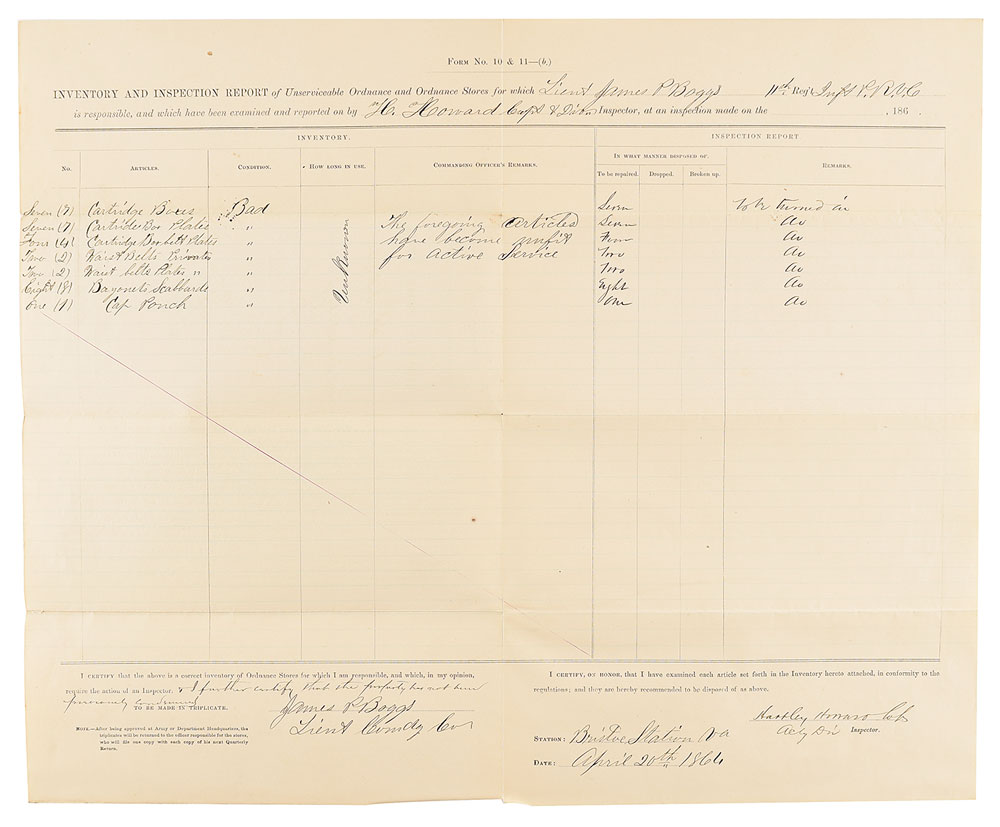 FORM NO. 10 & 11—(b.)
INVENTORY AND INSPECTION REPORT of Unserviceable Ordnance and Ordnance Stores for which Lieut James P Boggs 11th Reg't Inft P. R. V. C
is responsible, and which have been examined and reported on by H. Howard Capt & Divn Inspector, at an inspection made on the , 186 .
INVENTORY. INSPECTION REPORT
No. ARTICLES. CONDITION. HOW LONG IN USE. COMMANDING OFFICER'S REMARKS. IN WHAT MANNER DISPOSED OF. REMARKS.
To be repaired. Dropped. Broken up.
Seven (7) Cartridge Boxes Bad Seven to be turned in
Seven (7) Cartridge Box Plates " The foregoing articles Seven do
Four (4) Cartridge Box belt Plates " have become unfit Four do
Two (2) Waist Belts Privates " for active Service Two do
Two (2) Waist belts Plates " " Two do
Eight (8) Bayonets Scabbards " Eight do
One (1) Cap Pouch " One do
Time Unknown
I CERTIFY that the above is a correct inventory of Ordnance Stores for which I am responsible, and which, in my opinion,
require the action of an Inspector. & I further certify that the property has not been
previously condemned
TO BE MADE IN TRIPLICATE.
James P Boggs
Lieut Comdg Co
NOTE.—After being approved at Army or Department Headquarters, the
triplicates will be returned to the officer responsible for the stores,
who will file one copy with each copy of his next Quarterly
Return.
I CERTIFY, ON HONOR, that I have examined each article set forth in the Inventory hereto attached, in conformity to the
regulations; and they are hereby recommended to be disposed of as above.
Hartley Howard Capt
Actg Div Inspector.
STATION: Bristoe Station Va
DATE: April 20th 1864